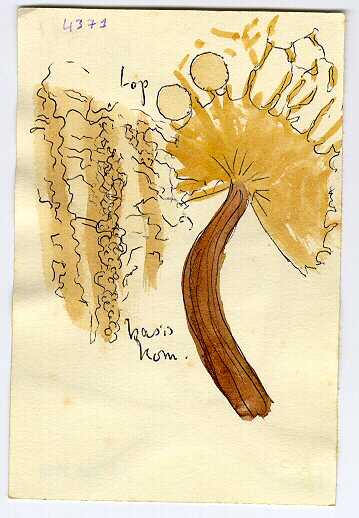 4371
Lop
basis
hom.